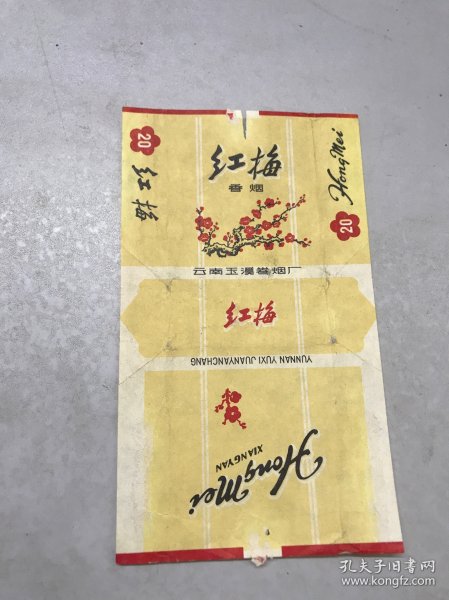 20
红梅
红梅
香烟
HongMei
20
云南玉溪卷烟厂
红梅
YUNNAN YUXI JUANYANCHANG
HongMei
XIANGYAN
孔夫子旧书网
www.kongfz.com